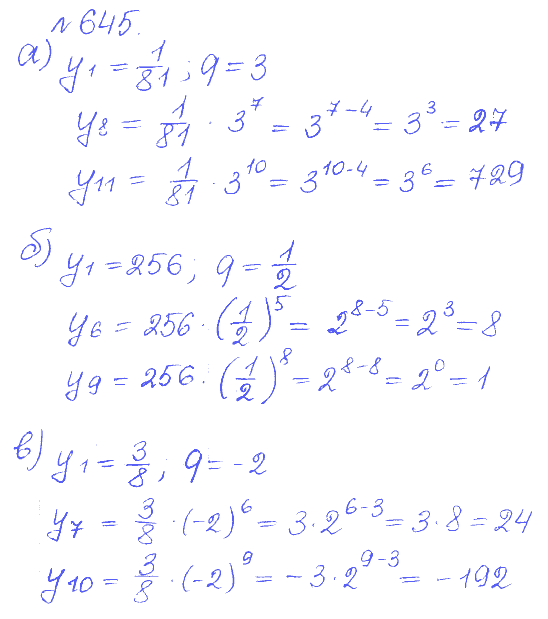 № 645.
а) y₁ = 1/81 ; q = 3
y₈ = 1/81 · 3⁷ = 3⁷⁻⁴ = 3³ = 27
y₁₁ = 1/81 · 3¹⁰ = 3¹⁰⁻⁴ = 3⁶ = 729
б) y₁ = 256; q = 1/2
y₆ = 256 · (1/2)⁵ = 2⁸⁻⁵ = 2³ = 8
y₉ = 256 · (1/2)⁸ = 2⁸⁻⁸ = 2⁰ = 1
в) y₁ = 3/8 ; q = -2
y₇ = 3/8 · (-2)⁶ = 3 · 2⁶⁻³ = 3 · 8 = 24
y₁₀ = 3/8 · (-2)⁹ = -3 · 2⁹⁻³ = -192